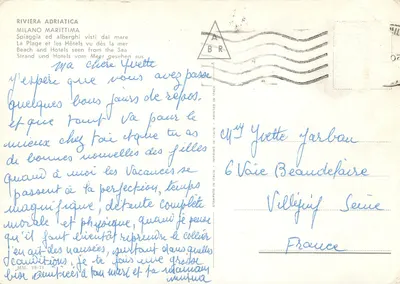 RIVIERA ADRIATICA
MILANO MARITTIMA
Spiaggia ed alberghi visti dal mare
La Plage et les Hôtels vu dès la mer
Beach and Hotels seen from the Sea
Strand und Hotels vom Meer gesehen
Ma chère Yvette
J'espère que vous avez passé
quelques bons jours de repos
et que tout va pour le
mieux chez toi et que tu as
de bonnes nouvelles des filles
quand à moi les vacances se
passent à la perfection, temps
magnifique, détente complète
morale et physique, quand je pense
qu'il faut bientôt reprendre le collier
j'en ai des nausées, surtout dans quelles
conditions, je te fais une grosse
bise ton mari et ta maman
A
B R
Yvette Jarbau
6 Voie Beaudelaire
Villejuif Seine
France